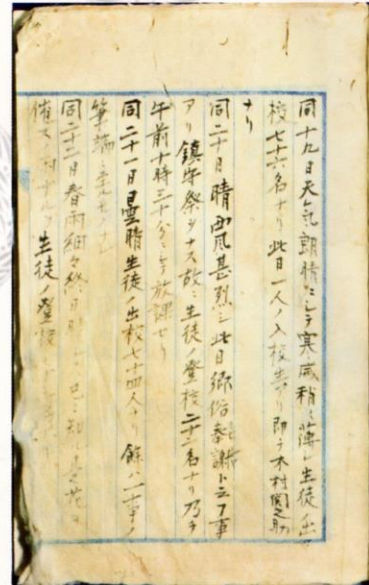 同十九日天気朗晴ニシテ寒威稍々薄シ生徒出
校七十六名ナリ此日一人ノ入校者アリ即チ木村関之助
ナリ
同二十日晴西風甚烈シ此日郷俗奉謝ト云フ事
アリ鎮守祭ヲナス故ニ生徒ノ登校二十三名ナリ乃チ
午前十時三十分ニテ放課セリ
同二十一日曇晴生徒ノ出校七十四人ナリ餘ハ一事ノ
筆端ニ
同二十二日春雨細々終日 已ニ知 花ヲ
催スノ 生徒ノ登校